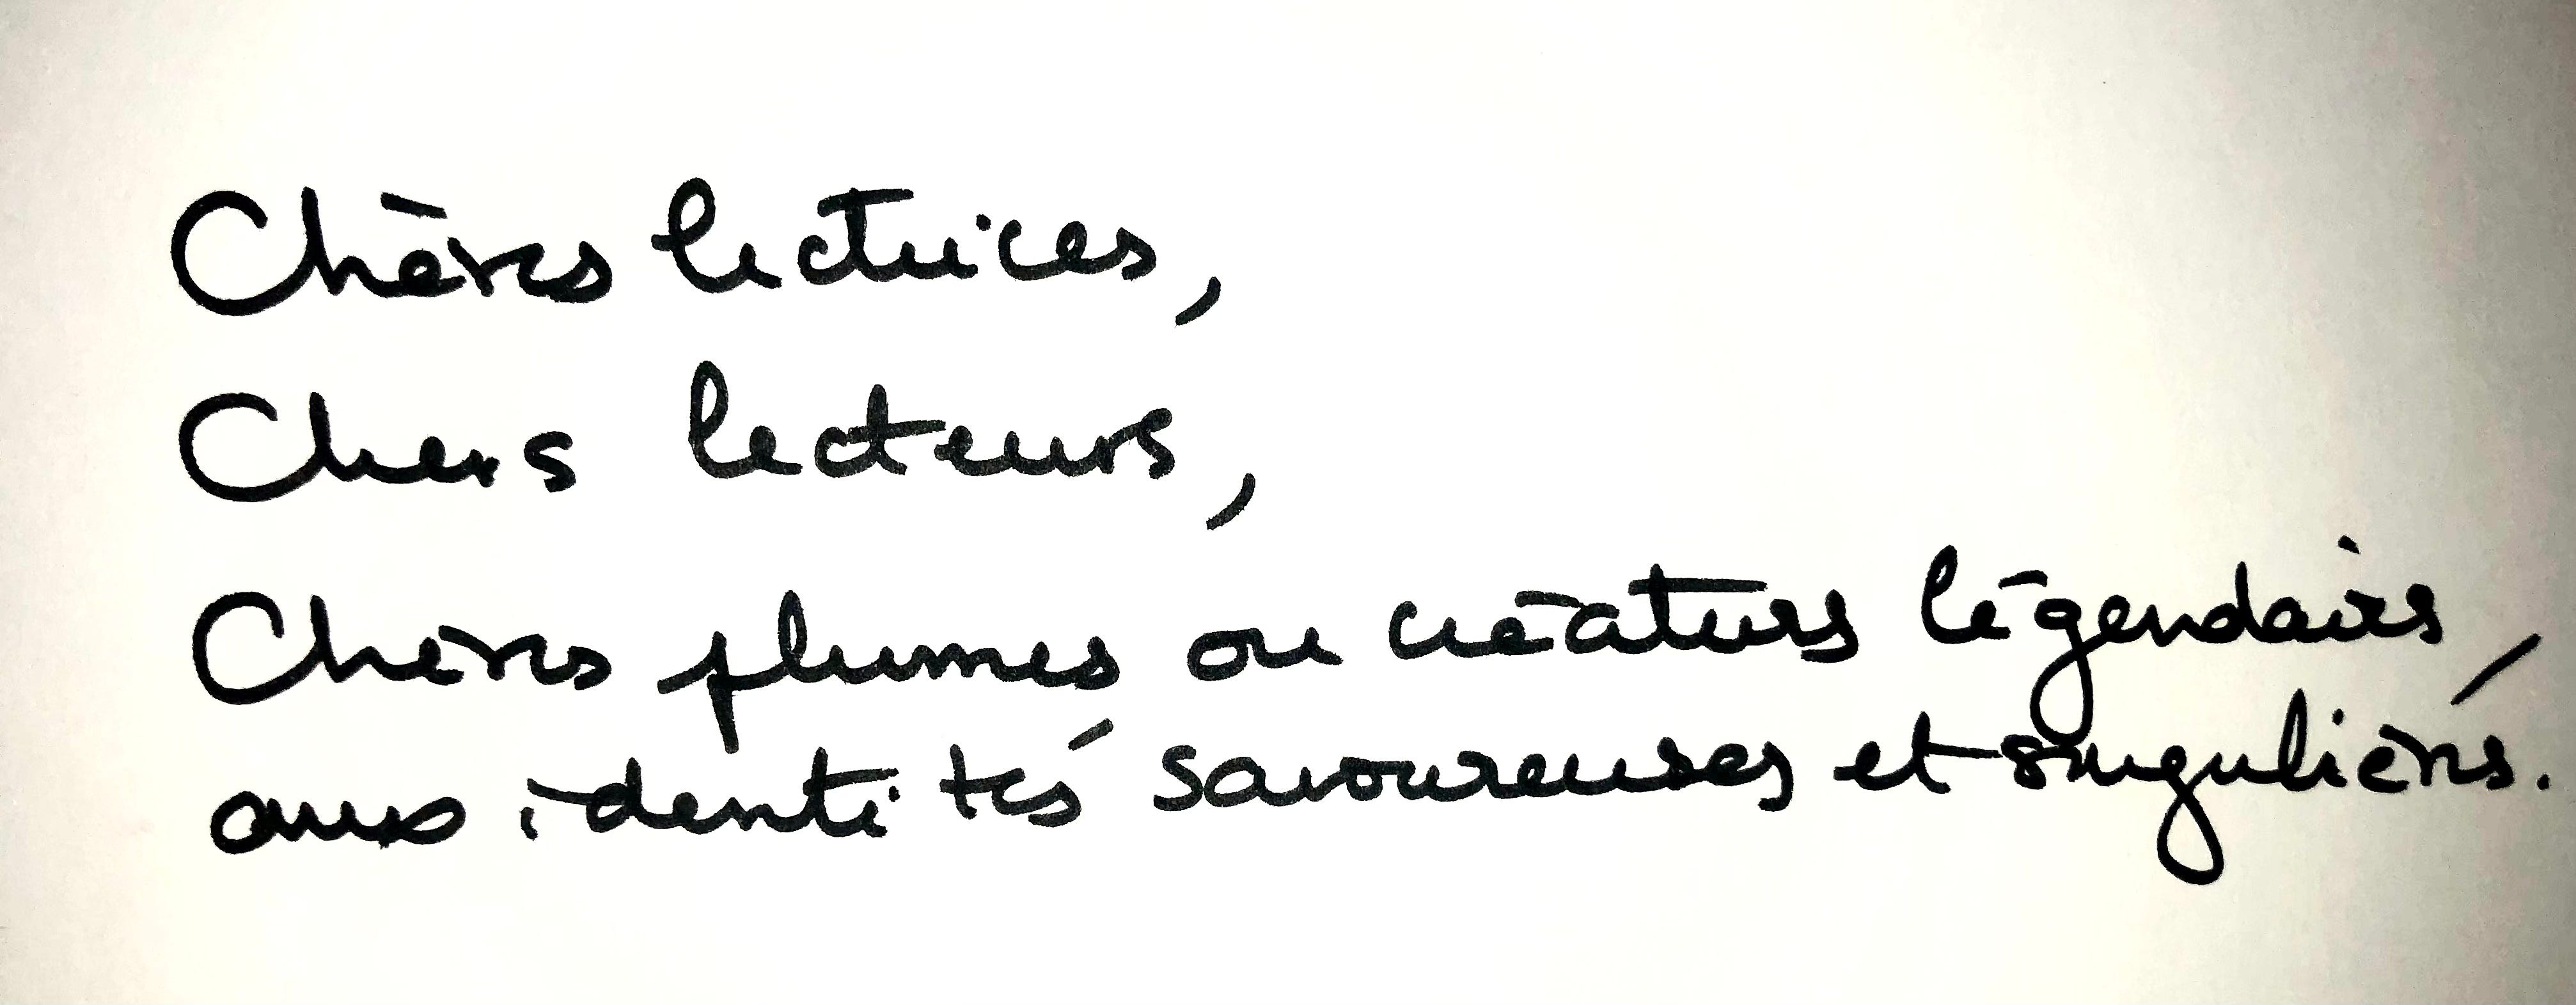 Chères lectrices,
Chers lecteurs,
Chères plumes ou créateurs légendaires,
aux identités savoureuses et singulières.